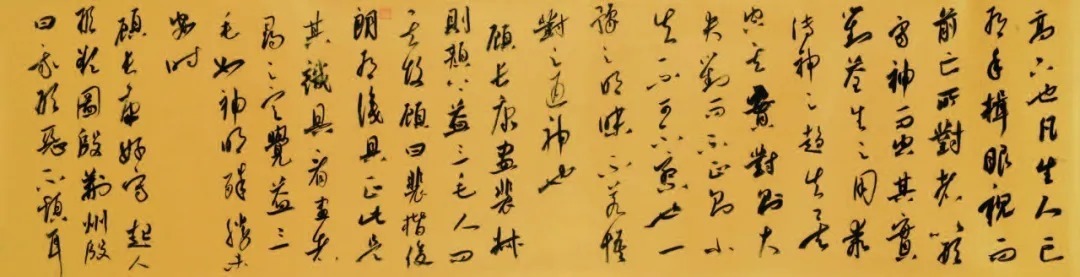 高下也凡生人亡
有手揖眼視而
前亡所對者以形
寫神而空其實
對荃生之用乖
傳神之趨失矣
空其實對則大
失對而不正則小
失不可不察也一
像之明昧不若悟
對之通神也
顧長康畫裴叔
則頰上益三毛人問
其故顧曰裴楷俊
朗有識具正此是
其識具看畫者
尋之定覺益三
毛如神明殊勝未
安時
顧長康好寫起人
形欲圖殷荊州殷
曰我形惡不煩耳